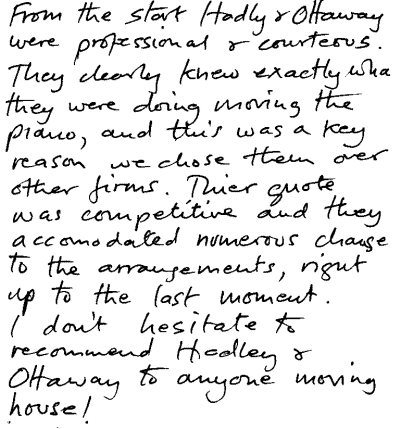 From the start Hadly & Ottaway
were professional & courteous.
They clearly knew exactly wha
they were doing moving the
piano, and this was a key
reason we chose them over
other firms. Thier quote
was competitive and they
accomodated numerous change
to the arrangements, right
up to the last moment.
I don't hesitate to
recommend Hadley &
Ottaway to anyone moving
house!